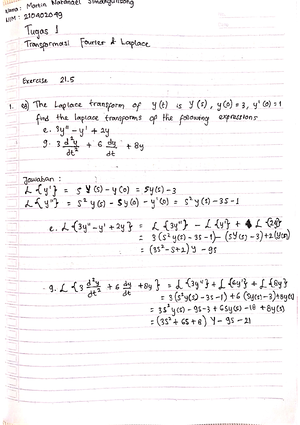 Nama : Martin Natanael Simangunsong
NIM : 210402049
Tugas 1
Transformasi Fourier & Laplace
Exercise 21.5
1. a) The Laplace transform of y(t) is Y(s), y(0) = 3, y'(0) = 1
find the laplace transforms of the following expressions
e. 3y'' - y' + 2y
g. 3 d²y/dt² + 6 dy/dt + 8y
Jawaban :
L {y'} = s Y(s) - y(0) = sy(s) - 3
L {y''} = s² Y(s) - s y(0) - y'(0) = s² Y(s) - 3s - 1
e. L {3y'' - y' + 2y} = L {3y''} - L {y'} + L {2y}
= 3 (s² y(s) - 3s - 1) - (sY(s) - 3) + 2(Y(s))
= (3s² - s + 2) Y - 9s
g. L {3 d²y/dt² + 6 dy/dt + 8y} = L {3y''} + L {6y'} + L {8y}
= 3 (s² y(s) - 3s - 1) + 6 (sy(s) - 3) + 8y(s)
= 3s² y(s) - 9s - 3 + 6sy(s) - 18 + 8y(s)
= (3s² + 6s + 8) Y - 9s - 21